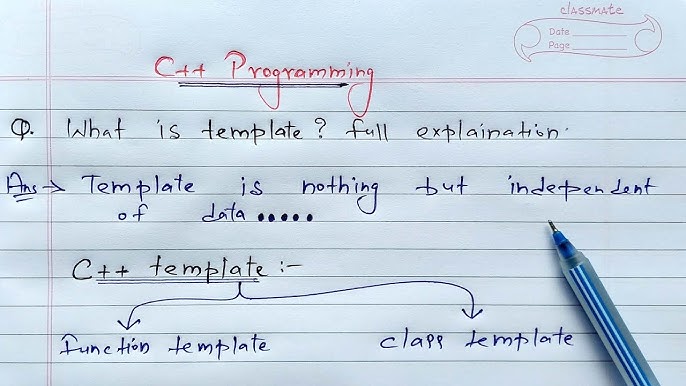 classmate
Date
Page
C++ Programming
Q. What is template? full explaination.
Ans → Template is nothing but independent
of data.....
C++ template :-
function template class template